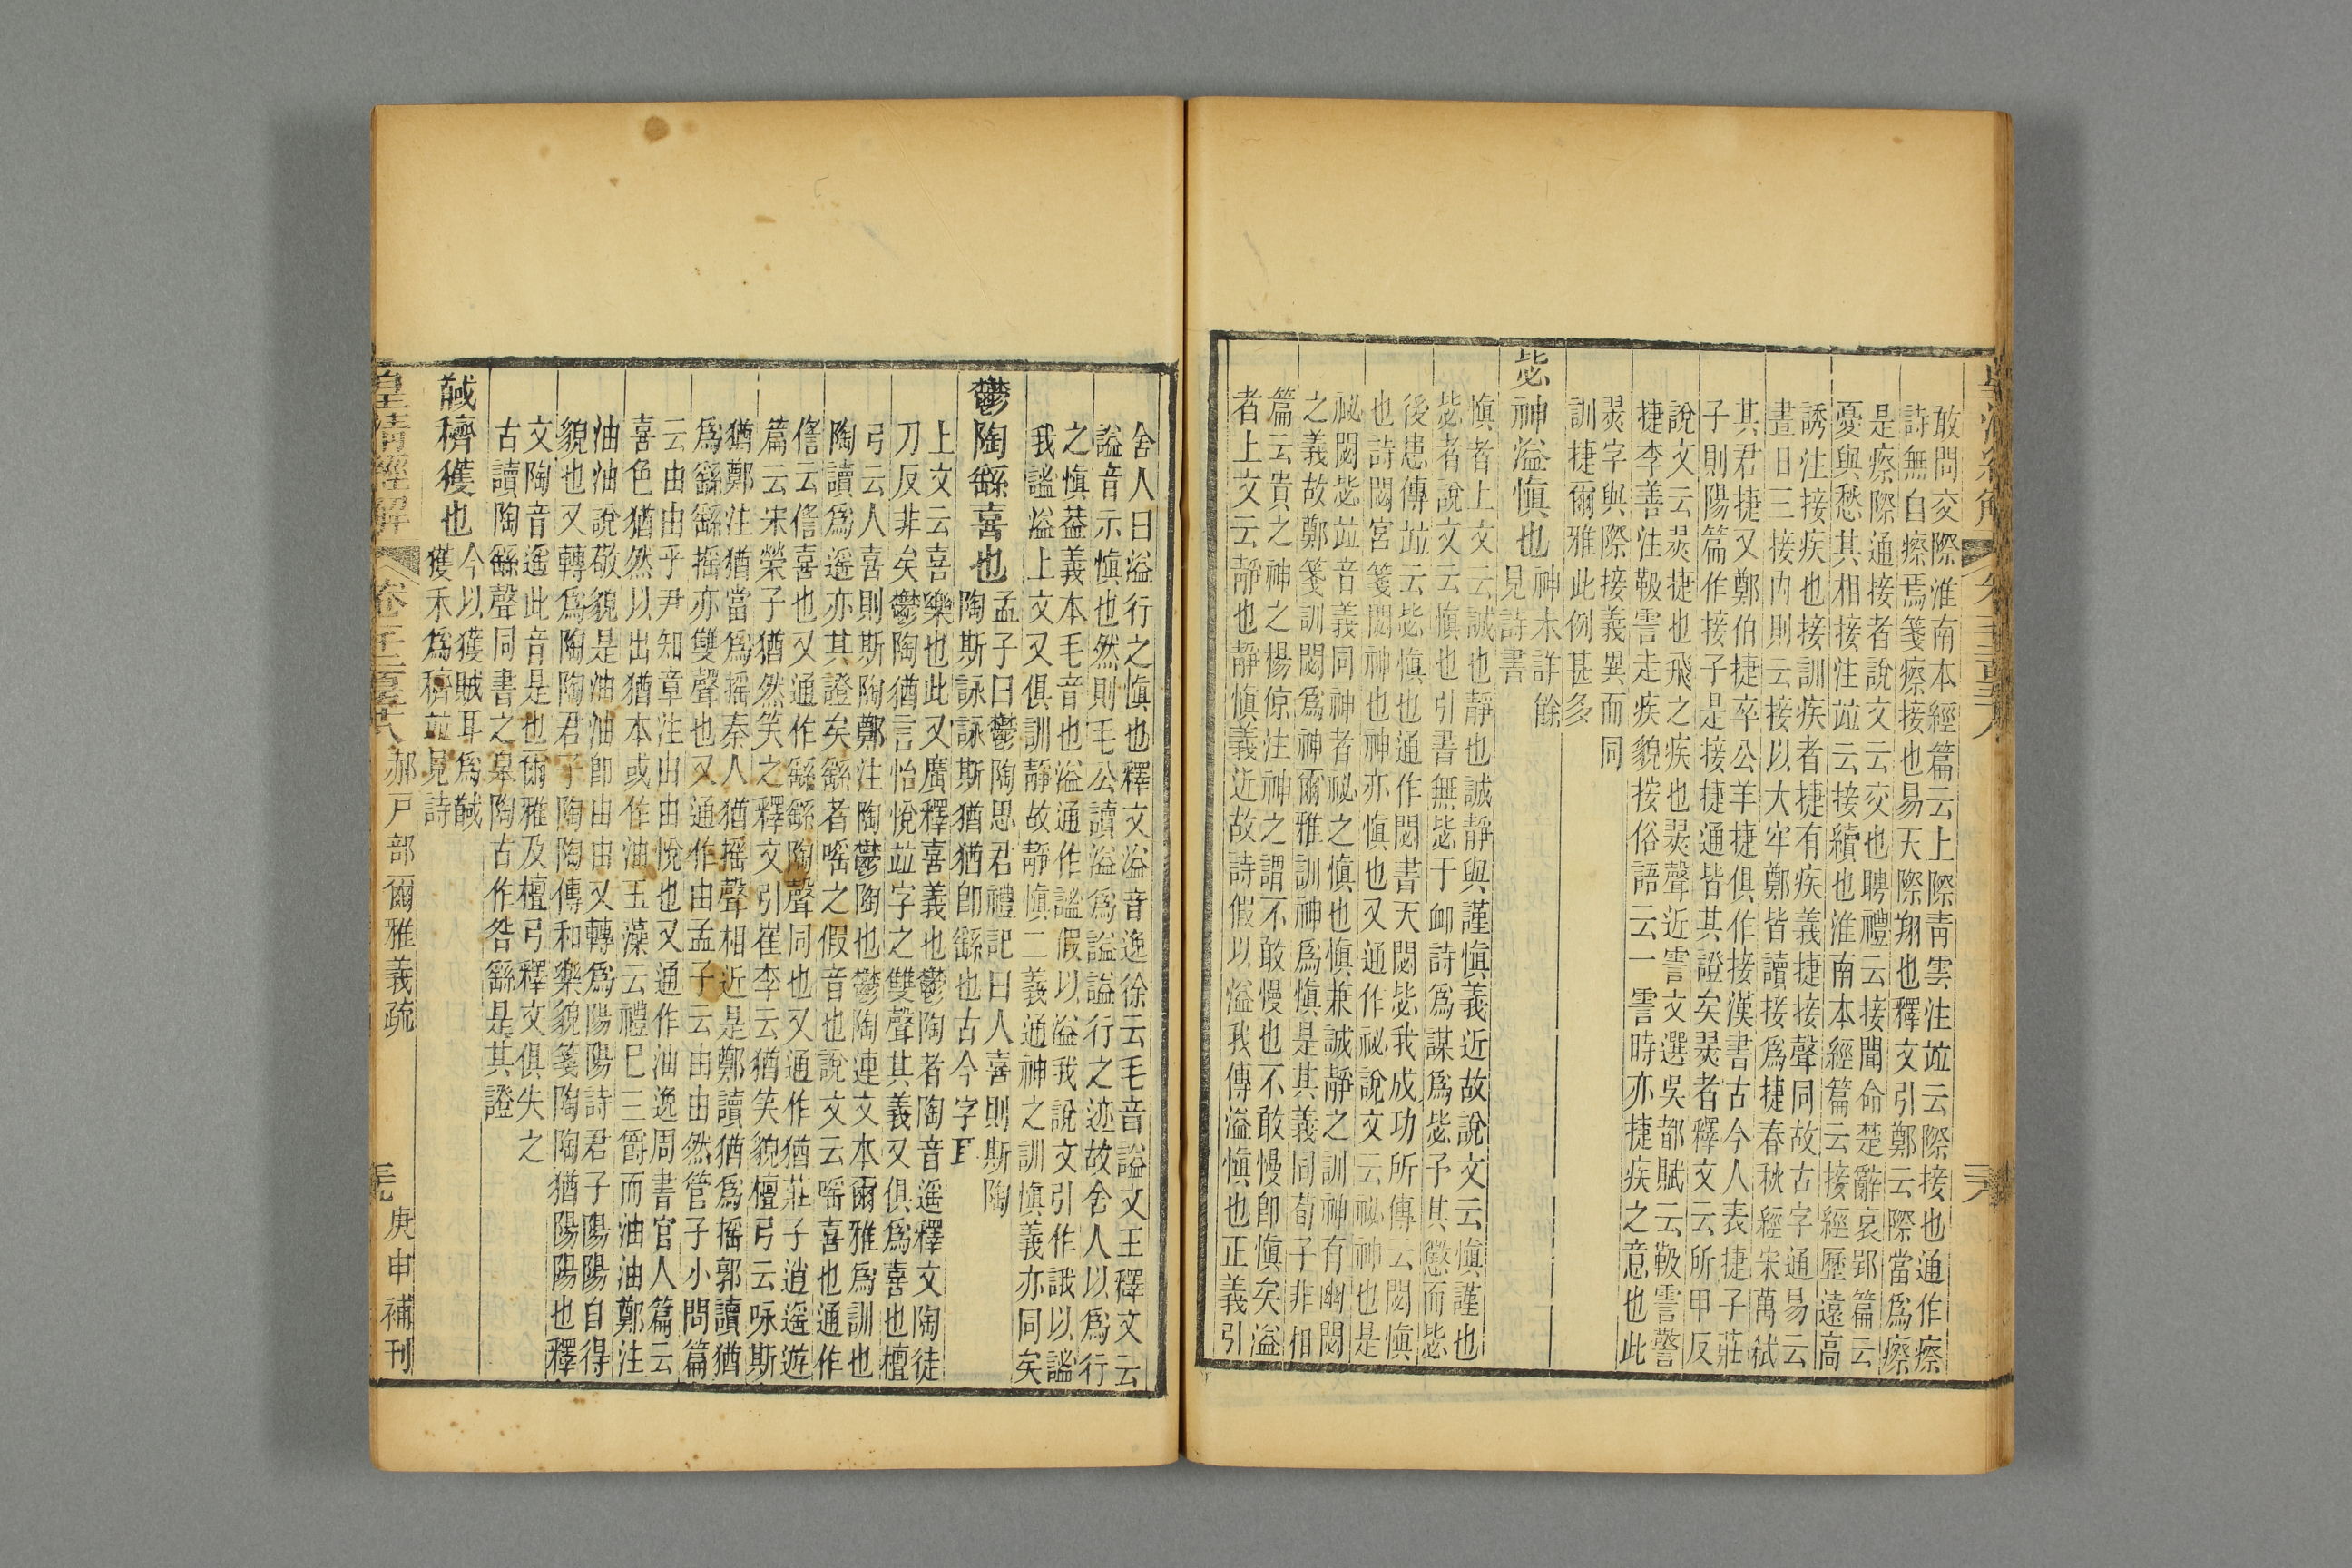 敢問交際淮南本經篇云上際靑雲注竝云際接也通作瘵
詩無自瘵焉箋瘵接也易天際翔也釋文引鄭云際當爲瘵
是瘵際通接者說文云交也聘禮云接聞命楚辭哀郢篇云
憂與愁其相接注竝云接續也淮南本經篇云接經歷遠高
誘注接疾也接訓疾者捷有疾義捷接聲同故古字通易云
晝日三接内則云接以大牢鄭皆讀接爲捷春秋經宋萬弑
其君捷又鄭伯捷卒公羊捷俱作接漢書古今人表捷子莊
子則陽篇作接子是接捷通皆其證矣翜者釋文云所甲反
說文云翜捷也飛之疾也翜聲近霅文選吳都賦云靸霅警
捷李善注靸霅走疾貌按俗語云一霅時亦捷疾之意也此
翜字與際接義異而同
訓捷爾雅此例甚多
毖神溢愼也
神未詳餘
見詩書
愼者上文云誠也靜也誠靜與謹愼義近故說文云愼謹也
毖者說文云愼也引書無毖于卹詩爲謀爲毖予其懲而毖
後患傳竝云毖愼也通作閟書天閟毖我成功所傳云閟愼
也詩閟宮箋閟神也神亦愼也又通作祕說文云祕神也是
祕閟毖竝音義同神者祕之愼也愼兼誠靜之訓神有幽閟
之義故鄭箋訓閟爲神爾雅訓神爲愼是其義同荀子非相
篇云貴之神之楊倞注神之謂不敢慢也不敢慢卽愼矣溢
者上文云靜也靜愼義近故詩假以溢我傳溢愼也正義引
舍人曰溢行之愼也釋文溢音逸徐云毛音謚文王釋文云
謚音示愼也然則毛公讀溢爲謚謚行之迹故舍人以爲行
之愼葢義本毛音也溢通作謐假以溢我說文引作誐以謐
我謐溢上文又俱訓靜故靜愼二義通神之訓愼義亦同矣
鬱陶繇喜也
孟子曰鬱陶思君禮記曰人喜則斯陶
陶斯詠詠斯猶猶卽繇也古今字耳
上文云喜樂也此又廣釋喜義也鬱陶者陶音遥釋文陶徒
刀反非矣鬱陶猶言怡悅竝字之雙聲其義又俱爲喜也檀
弓云人喜則斯陶鄭注陶鬱陶也鬱陶連文本爾雅爲訓也
陶讀爲遥亦其證矣繇者嗂之假音也說文云嗂喜也通作
㑾云㑾喜也又通作繇繇陶聲同也又通作猶莊子逍遥遊
篇云宋榮子猶然笑之釋文引崔李云猶笑貌檀弓云咏斯
猶鄭注猶當爲搖秦人猶搖聲相近是鄭讀猶爲搖郭讀猶
爲繇繇搖亦雙聲也又通作由孟子云由由然管子小問篇
云由由乎尹知章注由由悅也又通作油逸周書官人篇云
喜色猶然以出猶本或作油玉藻云禮已三爵而油油鄭注
油油說敬貌是油油卽由由又轉爲陽陽詩君子陽陽自得
貌也又轉爲陶陶君子陶陶傳和樂貌箋陶陶猶陽陽也釋
文陶音遥此音是也爾雅及檀弓釋文俱失之
古讀陶繇聲同書之臯陶古作咎繇是其證
馘穧獲也
今以獲賊耳爲馘
獲禾爲穧竝見詩
皇清經解
卷千二百五十八
郝戸部爾雅義疏
庚申補刊